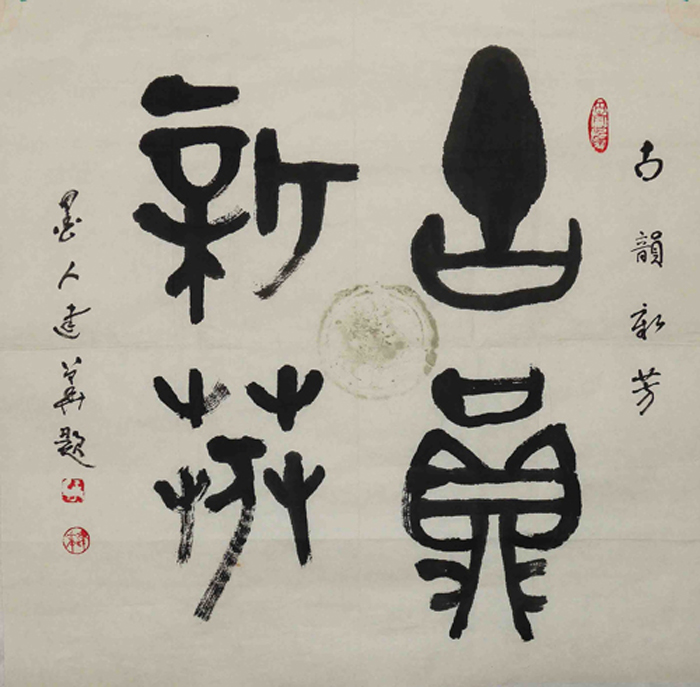 古韻
新芳
古韻新芳
墨人建華題